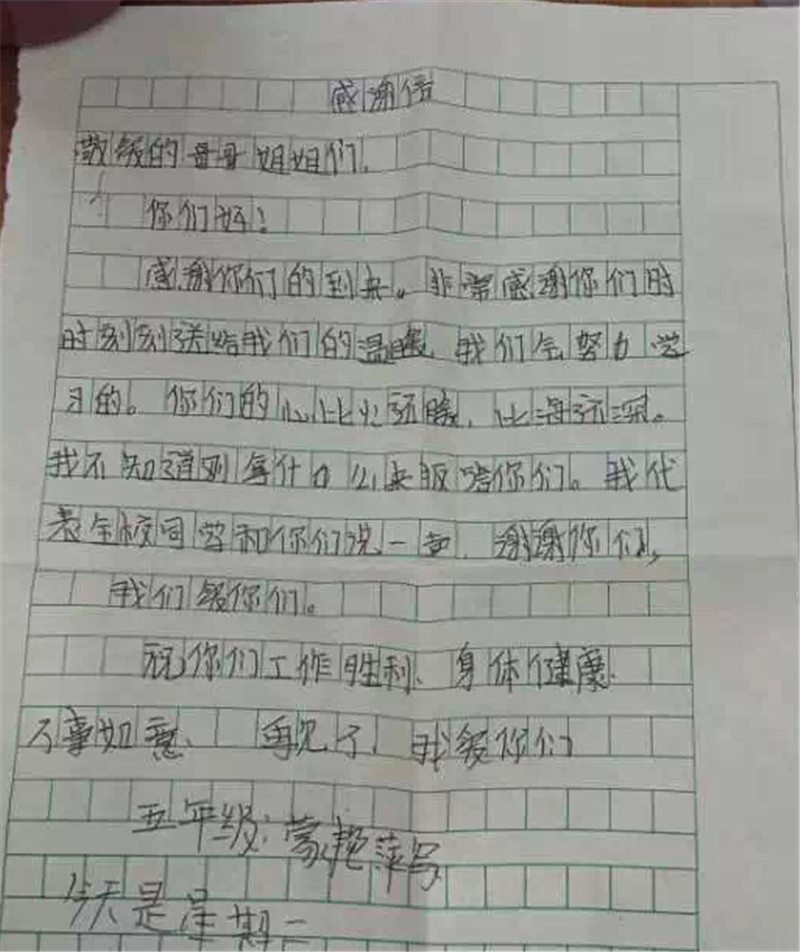 感谢信
敬爱的哥哥姐姐们,
你们好!
感谢你们的到来。非常感谢你们时
时刻刻送给我们的温暖,我们会努力学
习的。你们的心比火还暖,比海还深。
我不知道到拿什么来报答你们。我代
表全校同学和你们说一声,谢谢你们,
我们爱你们。
祝你们工作胜利、身体健康、
万事如意、再见了,我爱你们
五年级:蒙艳萍写
今天是星期二